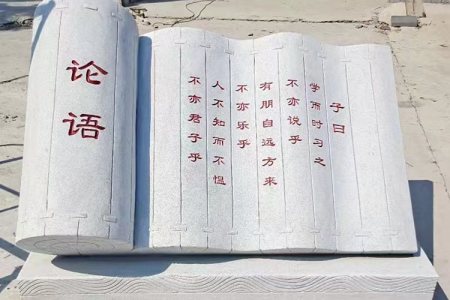 论语
子曰
学而时习之
不亦说乎
有朋自远方来
不亦乐乎
人不知而不愠
不亦君子乎